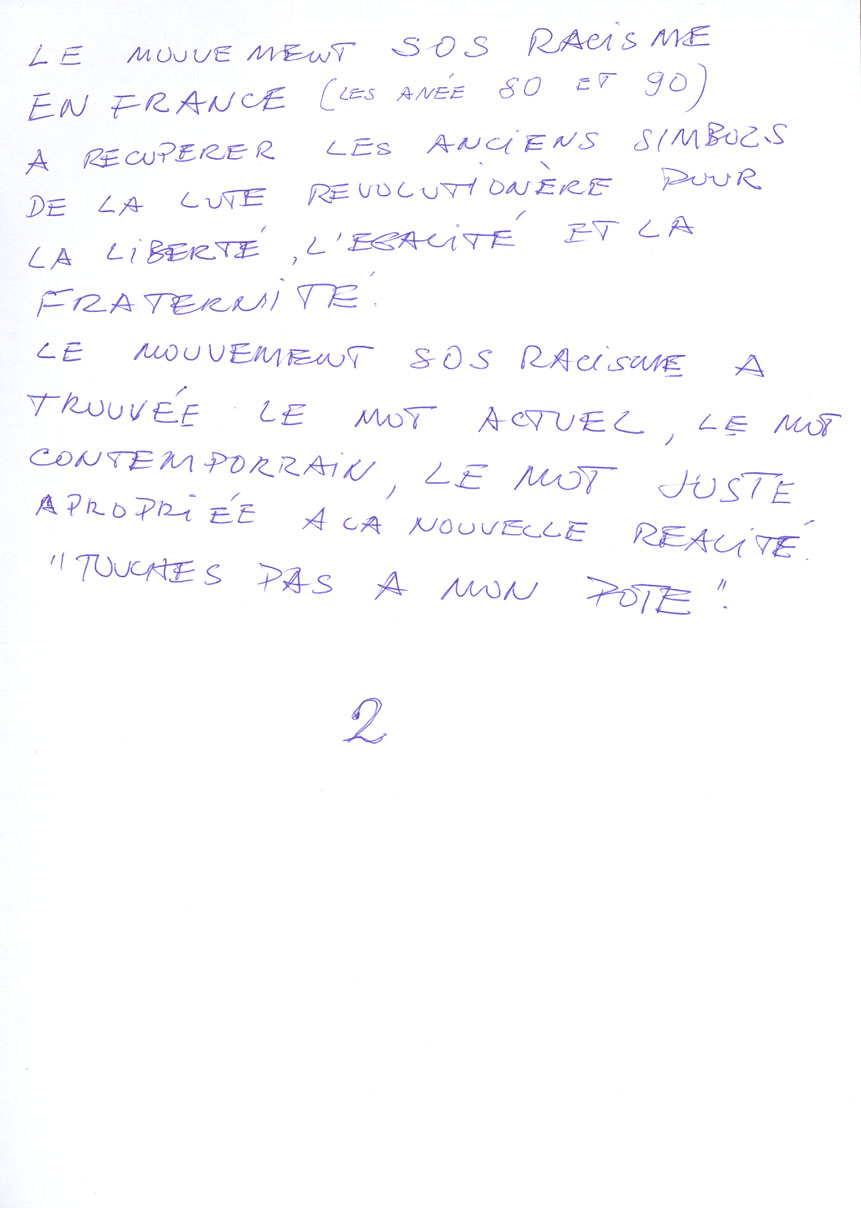 LE MOUVEMENT SOS RACISME
EN FRANCE (LES ANÉE 80 ET 90)
A RECUPERER LES ANCIENS SIMBOLS
DE LA LUTE REVOLUTIONÈRE POUR
LA LIBERTÉ, L'EGALITÉ ET LA
FRATERNITÉ.
LE MOUVEMENT SOS RACISME A
TROUVÉE LE MOT ACTUEL, LE MOT
CONTEMPORRAIN, LE MOT JUSTE
APROPRIÉE A LA NOUVELLE REALITÉ.
"TOUCHES PAS A MON POTE".
2